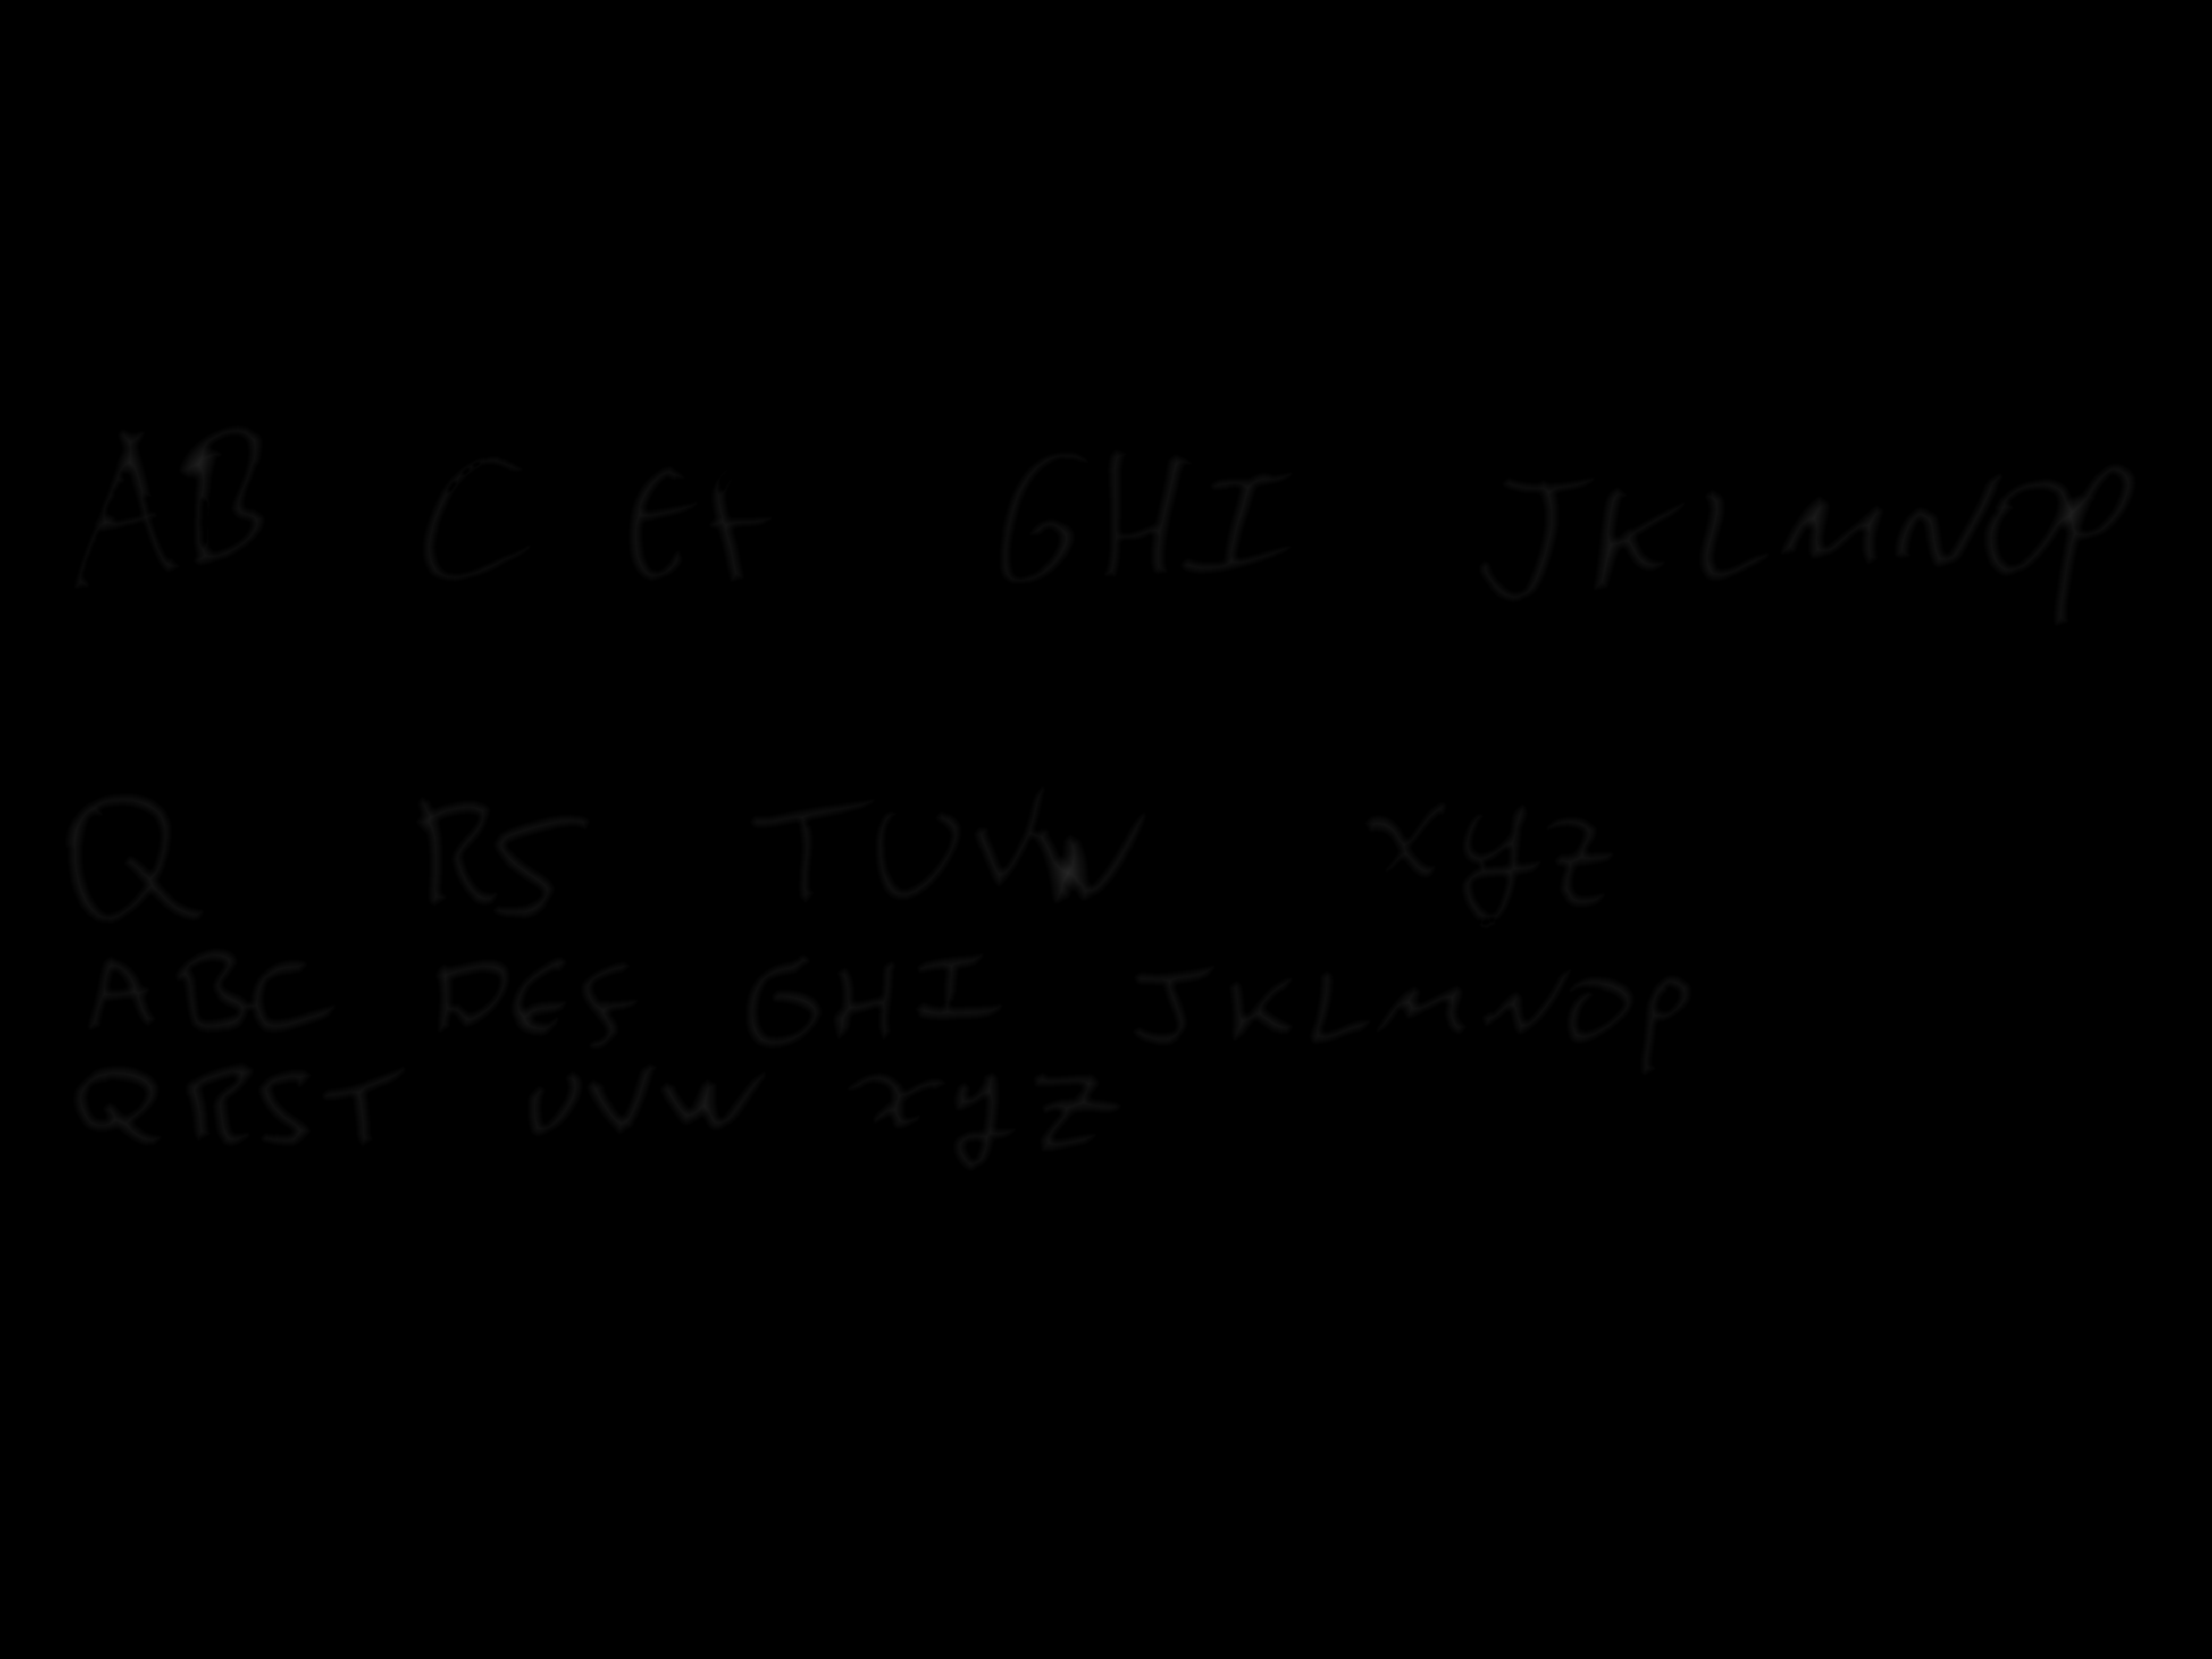 AB C EF GHI JKLMNOP
Q RS TUVW xyz
ABC DEF GHI JKLMNOP
QRST UVW xyz